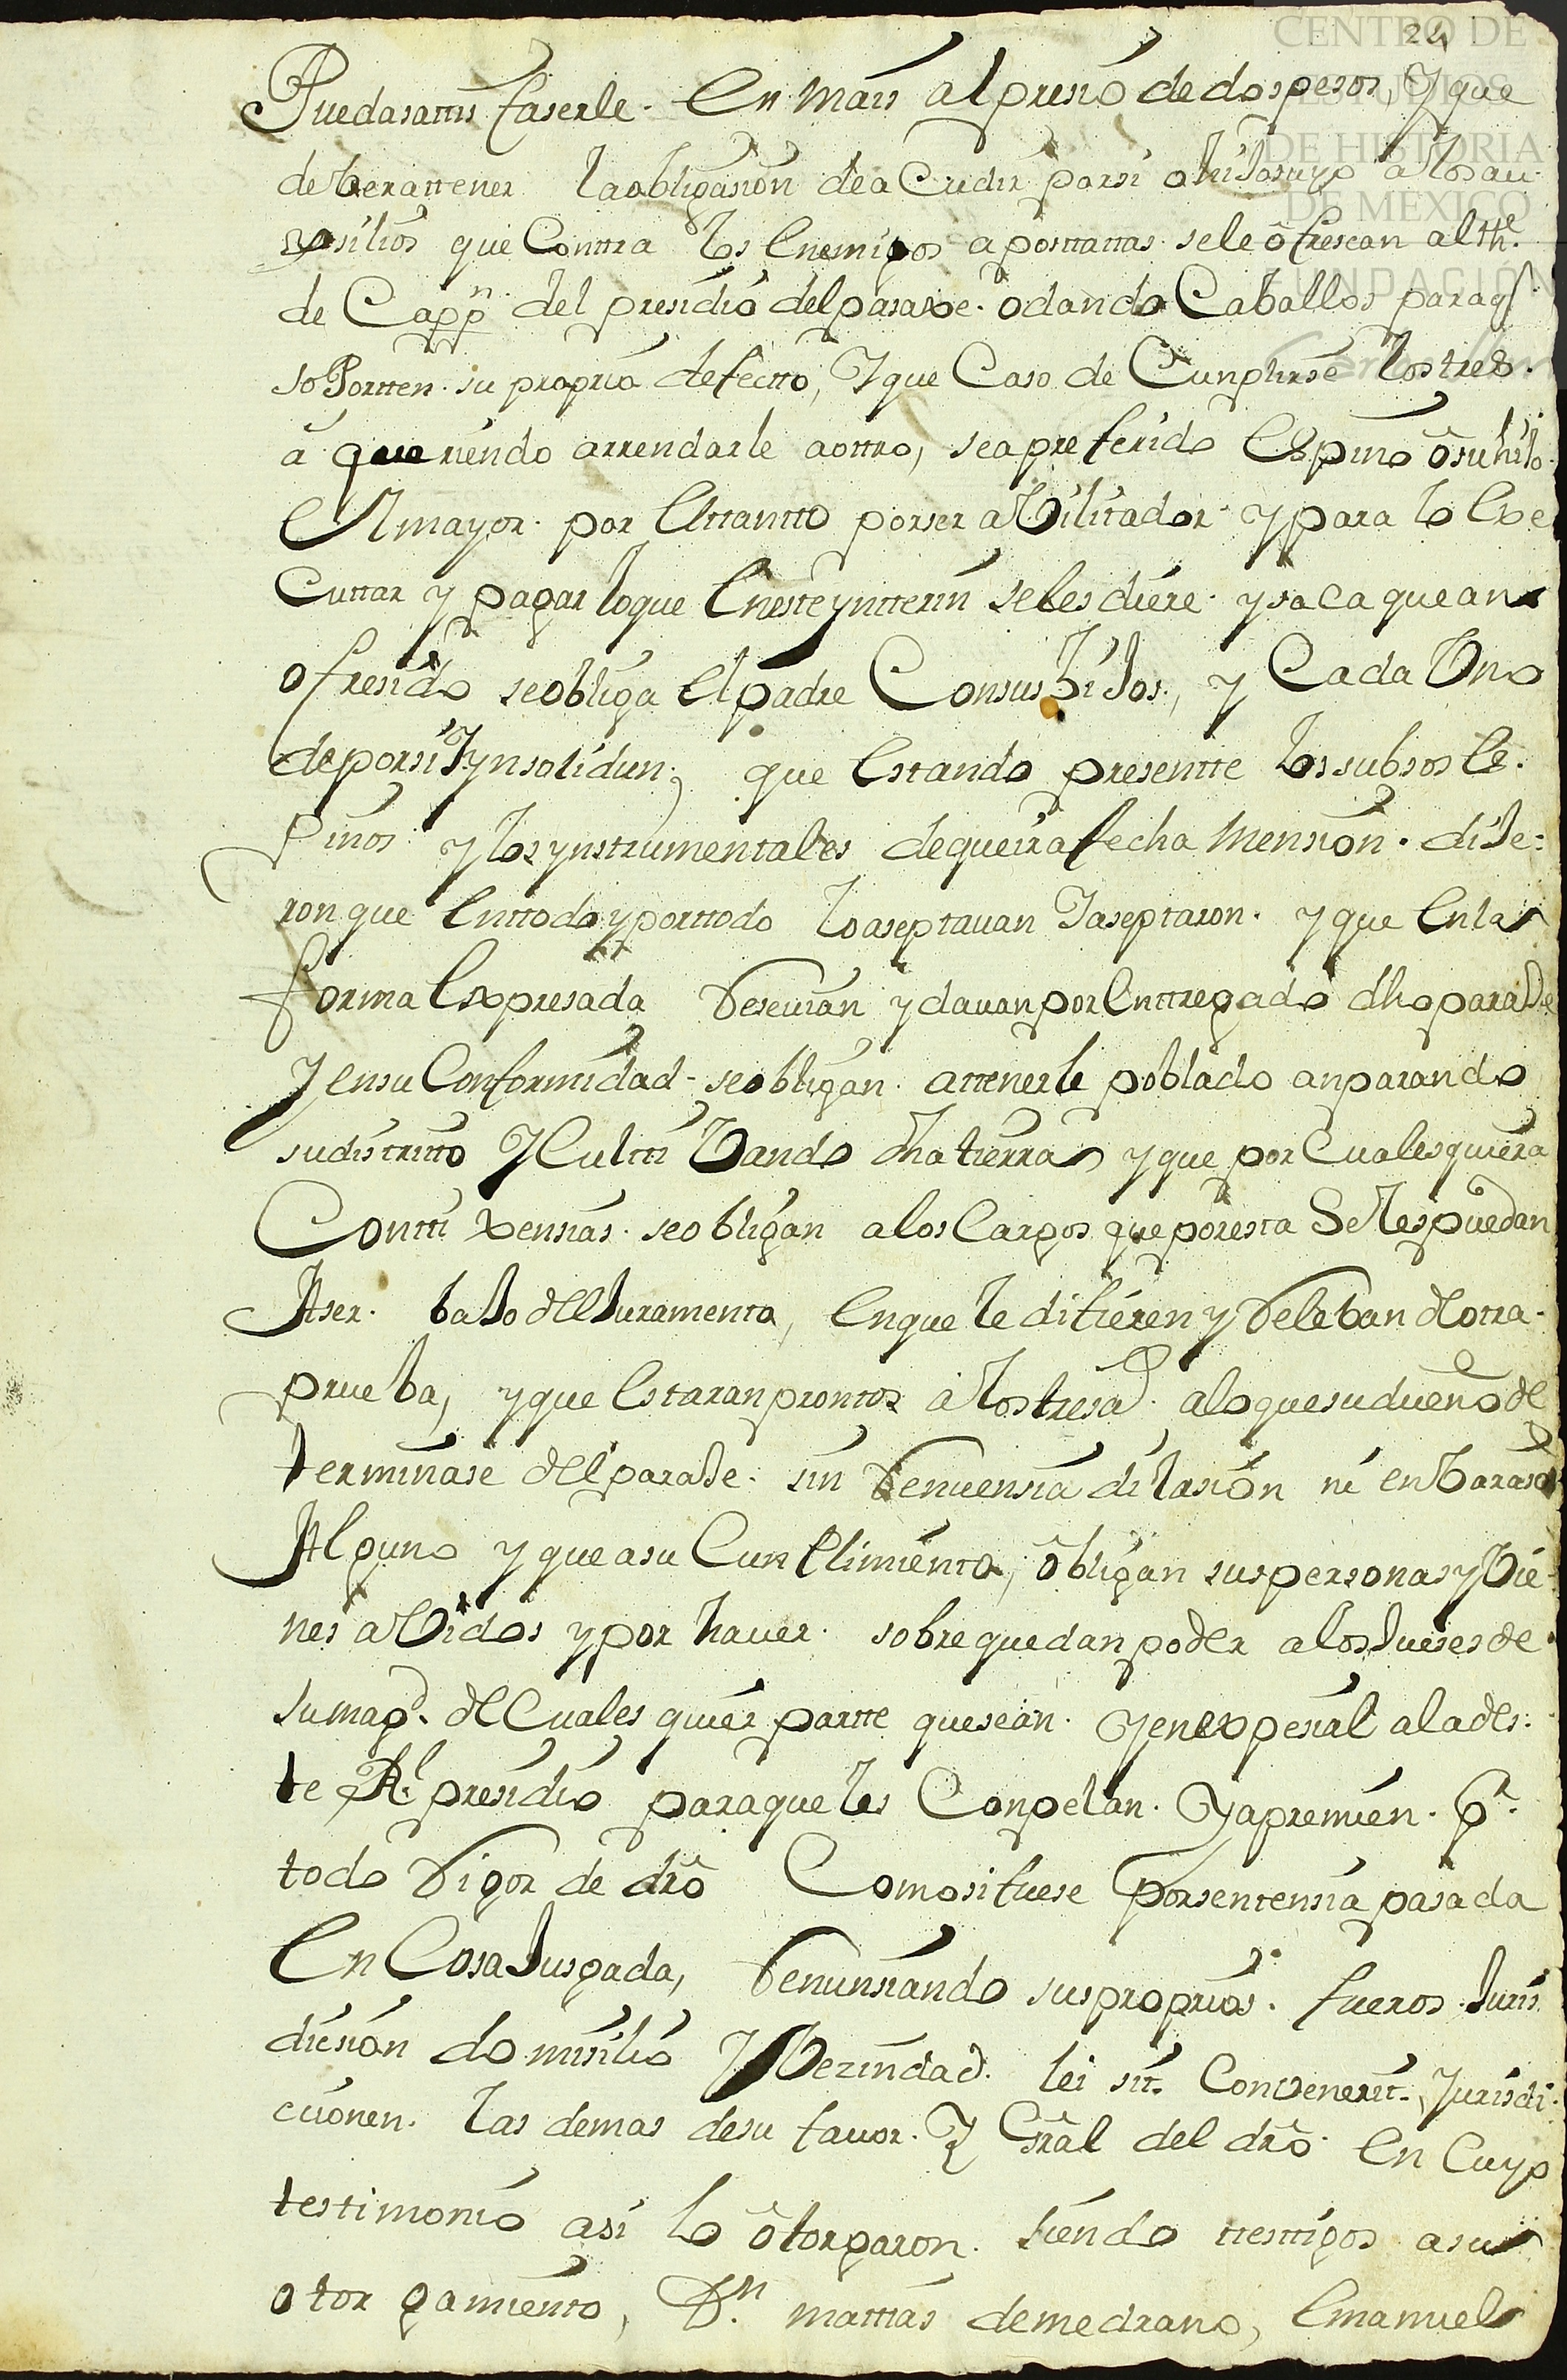 24
CENTRO DE
ESTUDIOS
DE HISTORIA
DE MEXICO
FUNDACIÓN
Puedasattis faserle. En mais al presio de dos pesos, Y que
deberattener la obligasion de a Cudir por si o hijo suyo a los au
xsilios que Conttra los Enemigos aposttattas se le ôfrescan al the.
de Cappn. del presidio del pasaxe. o dando Caballos para q
soPortten su propria defectto, Y que Caso de Cunplirse los tres.
a queriendo arrendarle aottro, sea preferido Espino ô su hijo
El mayor por el ttantto por ser abilitador y para lo Exe
Cuttar y pagar lo que En este yntterin se les diere y saca que an
ofresido se obliga el padre Con sus hijos, y Cada Uno
de por si Yynsolidun; que Estando presentte los subsos Es.
pinos y los ynstrumentales de que ira fecha Mension. dije:
ron que En ttodo y por ttodo lo aseptauan Y aseptaron. y que En la
forma Expresada Reseuian y dauan por Enttregado dho paraje
Y en su Conformidad se obligan. attenerle poblado anparando
su distritto Y Cultti Vando dha tierra y que por Cualesquiera
Contti xensias se obligan a los Cargos que por esta Se les puedan
Aser. bajo del Juramento, En que le difieren y Releban de otra
prueba, y que Estaran promtos a los tres ad. a lo que su dueño de
terminase del paraje. sin Renuensia dilasion ni enbaraso
Alguno y que a su Cunplimiento, ôbligan sus personas y Vie
nes abidos y por hauer. sobre que dan poder a los Jueses de
su magd. de Cuales quier partte que sean. Y en expesial a la des:
te Rl. presidio para que les Conpelan. Y apremien. pr.
todo Rigor de dro Como si fuese por sentensia pasada
En Cosa Jusgada, Renunsiando sus proprios. fueros Juris
dision domisilio Y Vezindad. lei sit. Convenerit. Jurisdi:
ccionen. las demas de su fauor. Y Gral del dro. En Cuyo
testimonio asi lo ôtorgaron. siendo ttesttigos a su
otorgamiento, Dn. mattias de medrano, Emanuel